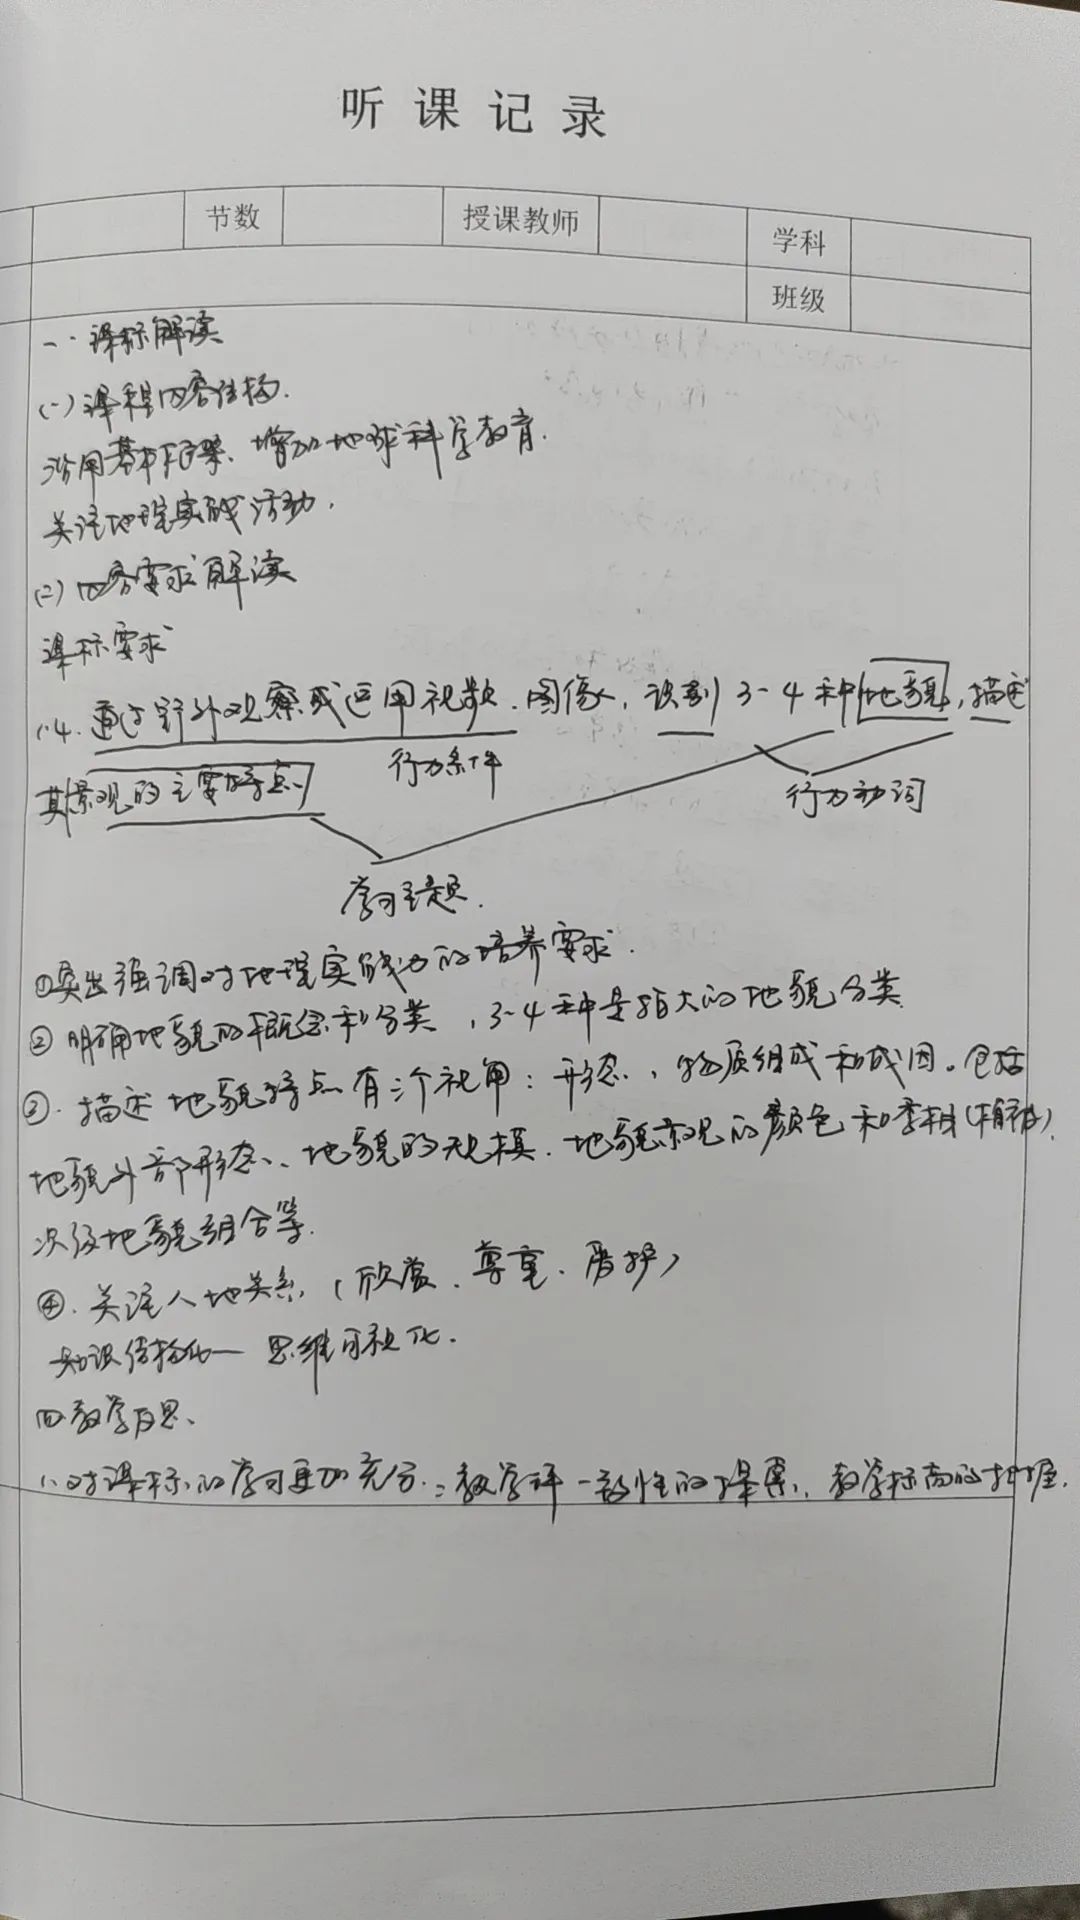 听课记录
节数 授课教师 学科
班级
一、课标解读
(一)课程内容结构.
沿用基本框架、增加地球科学教育.
关注地理实践活动.
(二)内容要求解读
课标要求
1.4.通过野外观察或运用视频、图像,识别3-4种地貌,描述
行为条件
其景观的主要特点、
行为动词
学习主题.
①突出强调对地理实践力的培养要求.
②明确地貌的概念和分类,3-4种是指大的地貌分类
③.描述地貌特点有三个视角:形态、物质组成和成因。包括
地貌外部形态、地貌的规模、地貌景观的颜色和季相(植被)、
次级地貌组合等.
④.关注人地关系(欣赏、尊重、爱护)
知识结构化—思维可视化.
四教学反思、
1、对课标的学习更加充分.2教学评一致性的探索、教学标高的把握.